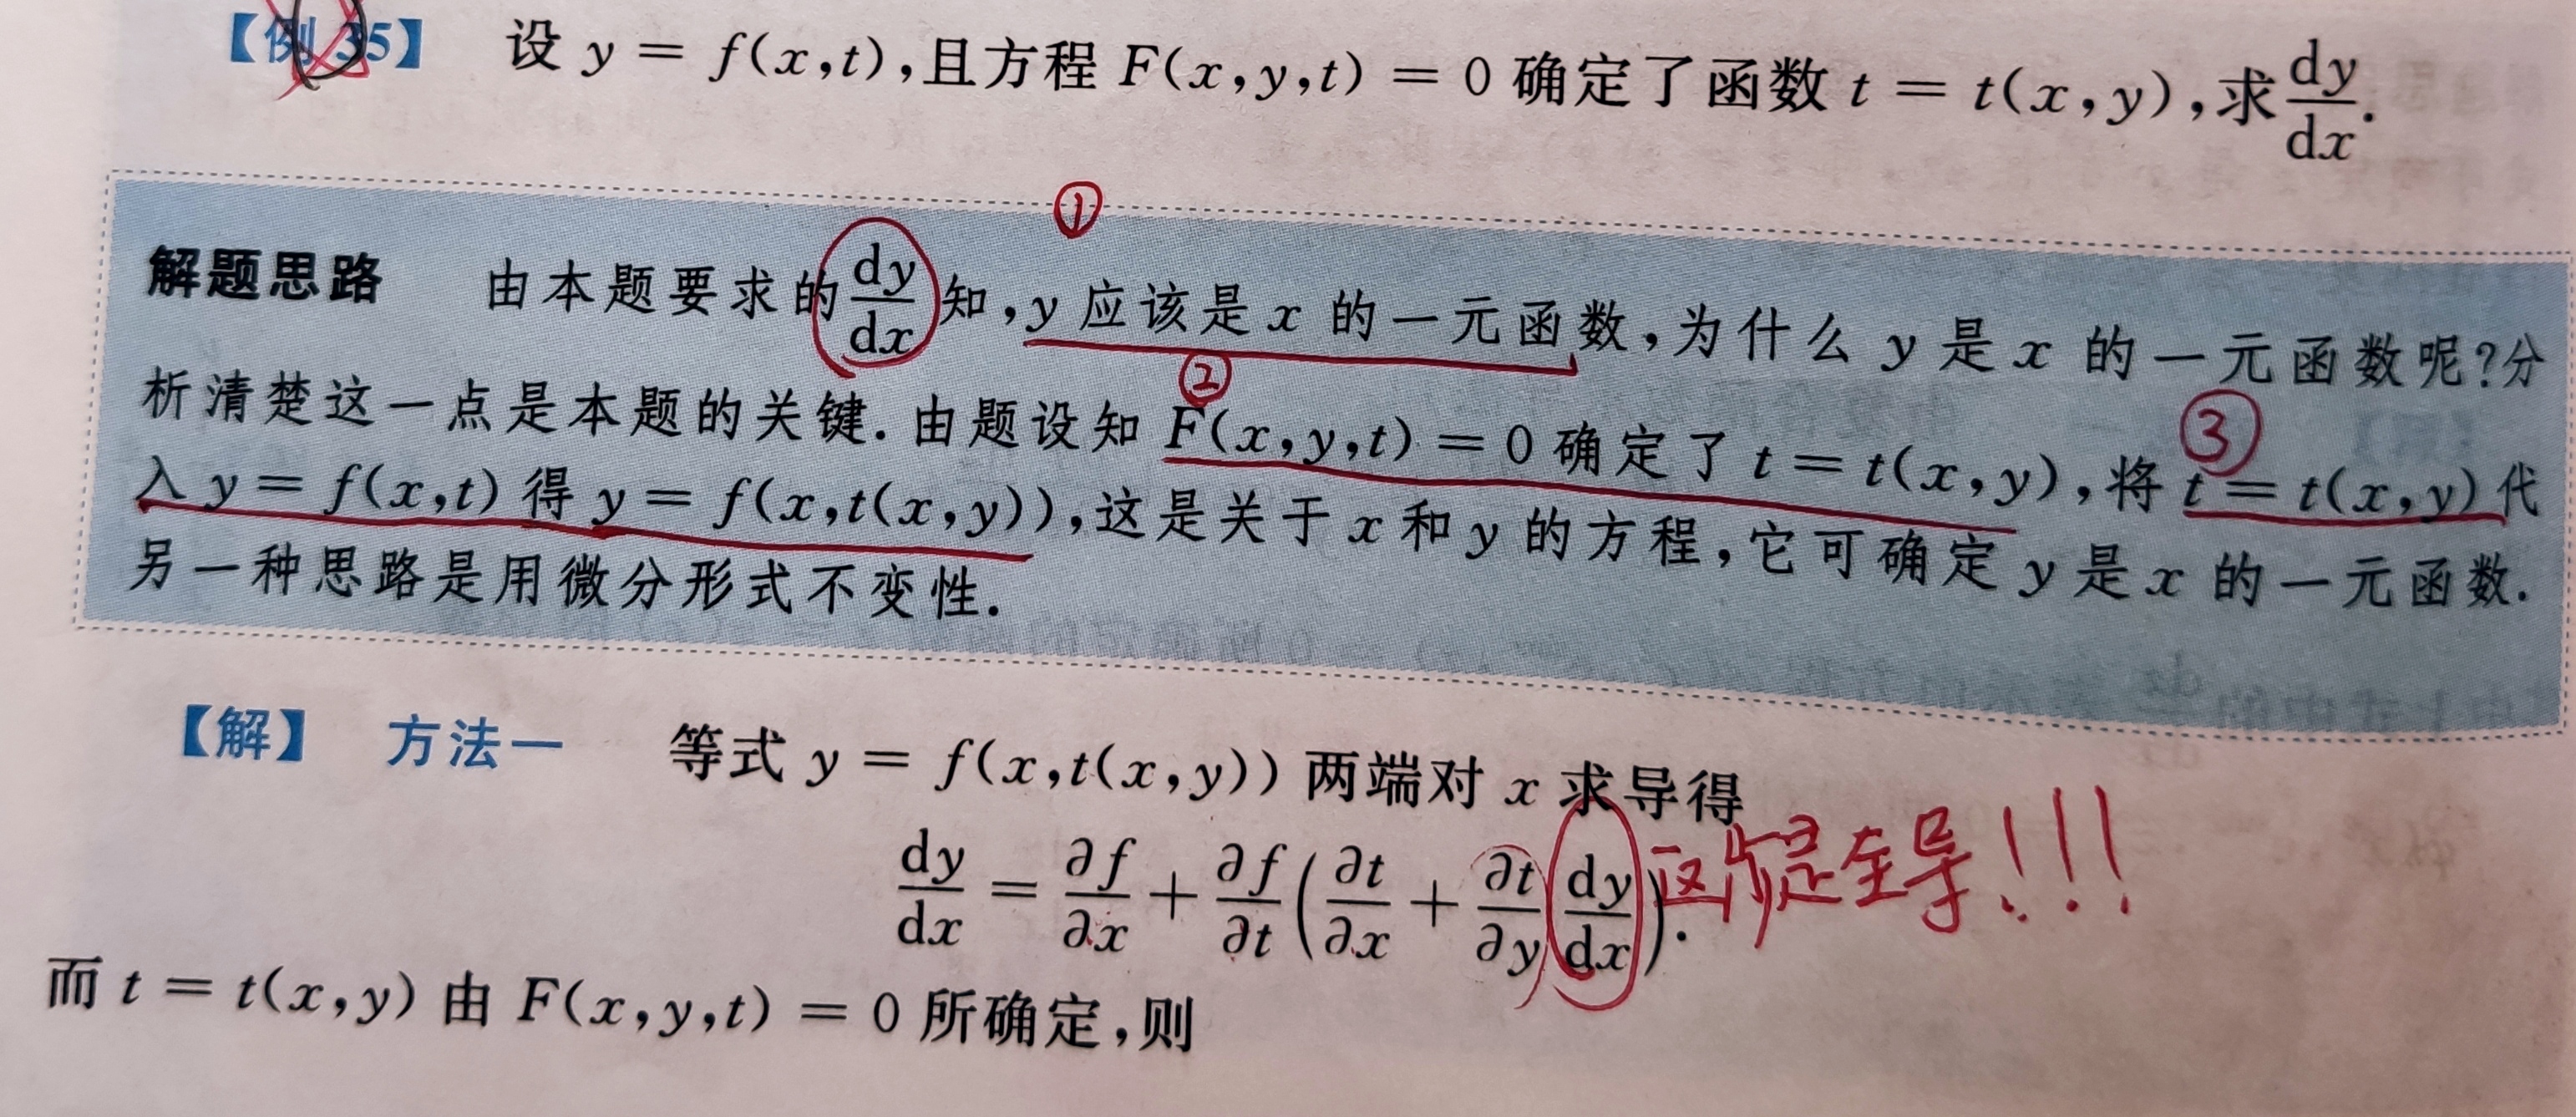 【例35】 设 y = f(x,t),且方程 F(x,y,t) = 0 确定了函数 t = t(x,y),求 dy/dx.
①
解题思路 由本题要求的 dy/dx 知,y 应该是 x 的一元函数,为什么 y 是 x 的一元函数呢?分
② ③
析清楚这一点是本题的关键.由题设知 F(x,y,t) = 0 确定了 t = t(x,y),将 t = t(x,y) 代
入 y = f(x,t) 得 y = f(x,t(x,y)),这是关于 x 和 y 的方程,它可确定 y 是 x 的一元函数.
另一种思路是用微分形式不变性.
【解】 方法一 等式 y = f(x,t(x,y)) 两端对 x 求导得
dy/dx = ∂f/∂x + ∂f/∂t (∂t/∂x + ∂t/∂y dy/dx). 这是全导!!!
而 t = t(x,y) 由 F(x,y,t) = 0 所确定,则